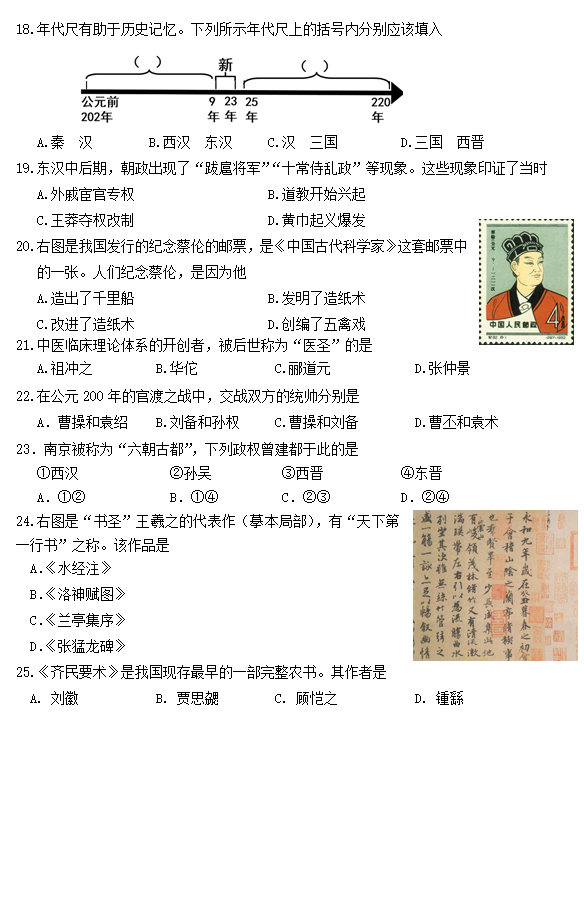 18.年代尺有助于历史记忆。下列所示年代尺上的括号内分别应该填入
（ ） 新 （ ）
公元前202年 9年 23年 25年 220年
A.秦 汉 B.西汉 东汉 C.汉 三国 D.三国 西晋
19.东汉中后期，朝政出现了“跋扈将军”“十常侍乱政”等现象。这些现象印证了当时
A.外戚宦官专权 B.道教开始兴起
C.王莽夺权改制 D.黄巾起义爆发
20.右图是我国发行的纪念蔡伦的邮票，是《中国古代科学家》这套邮票中
的一张。人们纪念蔡伦，是因为他
A.造出了千里船 B.发明了造纸术
C.改进了造纸术 D.创编了五禽戏
4
中国人民邮政
21.中医临床理论体系的开创者，被后世称为“医圣”的是
A.祖冲之 B.华佗 C.郦道元 D.张仲景
22.在公元 200 年的官渡之战中，交战双方的统帅分别是
A. 曹操和袁绍 B.刘备和孙权 C.曹操和刘备 D.曹丕和袁术
23. 南京被称为“六朝古都”，下列政权曾建都于此的是
①西汉 ②孙吴 ③西晋 ④东晋
A. ①② B. ①④ C. ②③ D. ②④
24.右图是“书圣”王羲之的代表作（摹本局部），有“天下第
一行书”之称。该作品是
A.《水经注》
B.《洛神赋图》
C.《兰亭集序》
D.《张猛龙碑》
永和九年歲在癸丑暮春之初會
于會稽山陰之蘭亭脩稧事
也群賢畢至少長咸集此地
有峻領茂林脩竹又有清流激
湍暎帶左右引以為流觴曲水
列坐其次雖無絲竹管弦之
盛一觴一詠亦足以暢敘幽情
25.《齐民要术》是我国现存最早的一部完整农书。其作者是
A. 刘徽 B. 贾思勰 C. 顾恺之 D. 锺繇